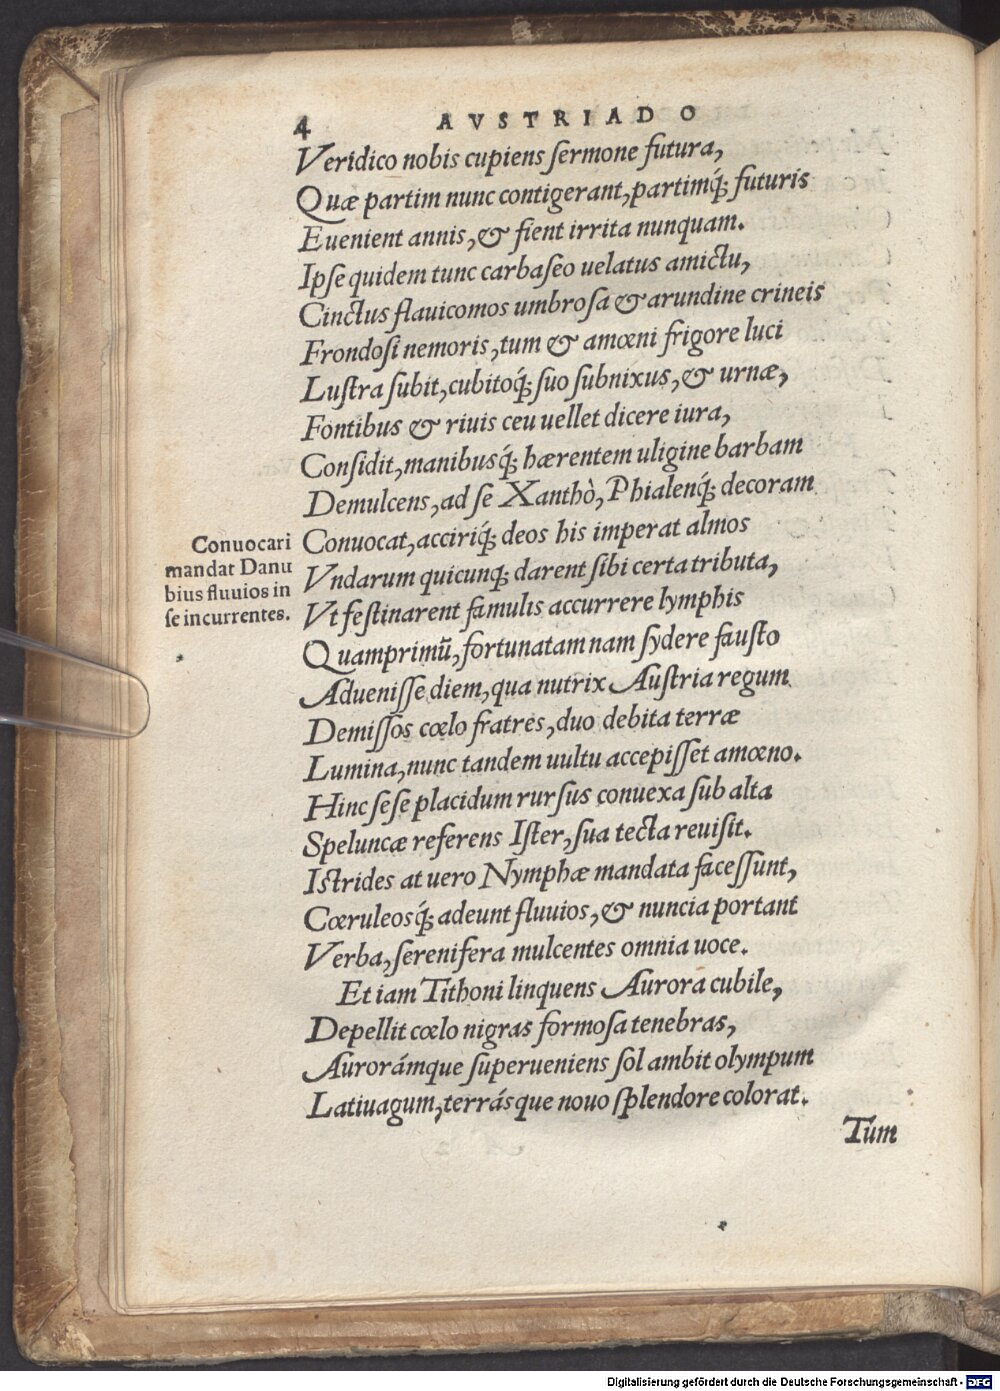 4 AVSTRIADO
Veridico nobis cupiens sermone futura,
Quæ partim nunc contigerant, partimq́; futuris
Euenient annis, & fient irrita nunquam.
Ipse quidem tunc carbaseo uelatus amictu,
Cinctus flauicomos umbrosa & arundine crineis
Frondosi nemoris, tum & amœni frigore luci
Lustra subit, cubitoq́; suo subnixus, & urnæ,
Fontibus & riuis ceu uellet dicere iura,
Considit, manibusq́; hærentem uligine barbam
Demulcens, ad se Xanthò, Phialenq́; decoram
Conuocat, acciriq́; deos his imperat almos
Vndarum quicunq; darent sibi certa tributa,
Vt festinarent famulis accurrere lymphis
Quamprimū, fortunatam nam sydere fausto
Aduenisse diem, qua nutrix Austria regum
Demissos cœlo fratres, duo debita terræ
Lumina, nunc tandem uultu accepisset amœno.
Hinc sese placidum rursus conuexa sub alta
Speluncæ referens Ister, sua tecta reuisit.
Istrides at uero Nymphæ mandata facessunt,
Cœruleosq́; adeunt fluuios, & nuncia portant
Verba, serenifera mulcentes omnia uoce.
Et iam Tithoni linquens Aurora cubile,
Depellit cœlo nigras formosa tenebras,
Aurorámque superueniens sol ambit olympum
Latiuagum, terrásque nouo splendore colorat.
Tum
Conuocari
mandat Danu
bius fluuios in
se incurrentes.
Digitalisierung gefördert durch die Deutsche Forschungsgemeinschaft - DFG